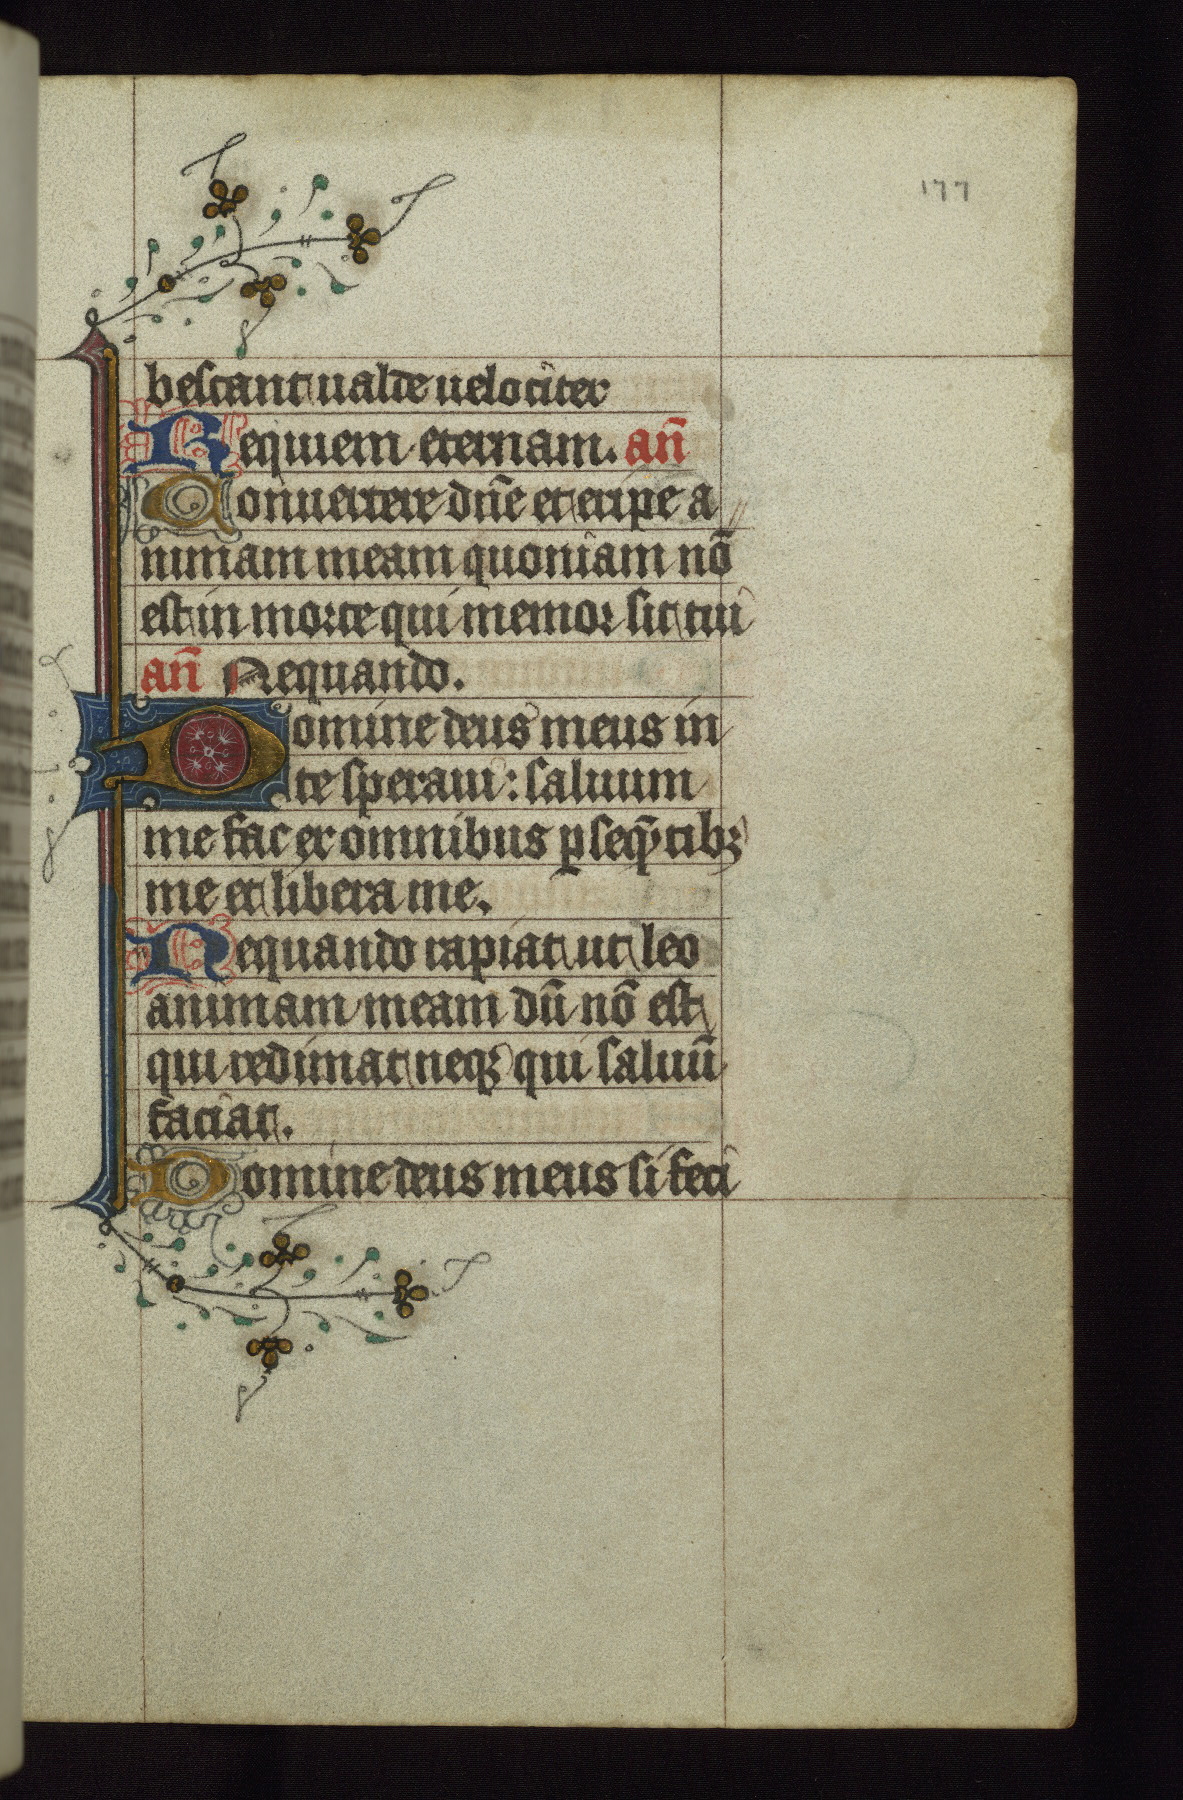 177
bescant ualde uelociter
Requiem eternam. añ
Conuertere dñe et eripe a
nimam meam quoniam nō
est in morte qui memor sit tui
añ Nequando.
Domine deus meus in
te speraui: saluum
me fac ex omnibus ꝑseq̄ntibꝫ
me et libera me.
Nequando rapiat ut leo
animam meam dū nō est
qui redimat neqꝫ qui saluū
faciat.
Domine deus meus si feci